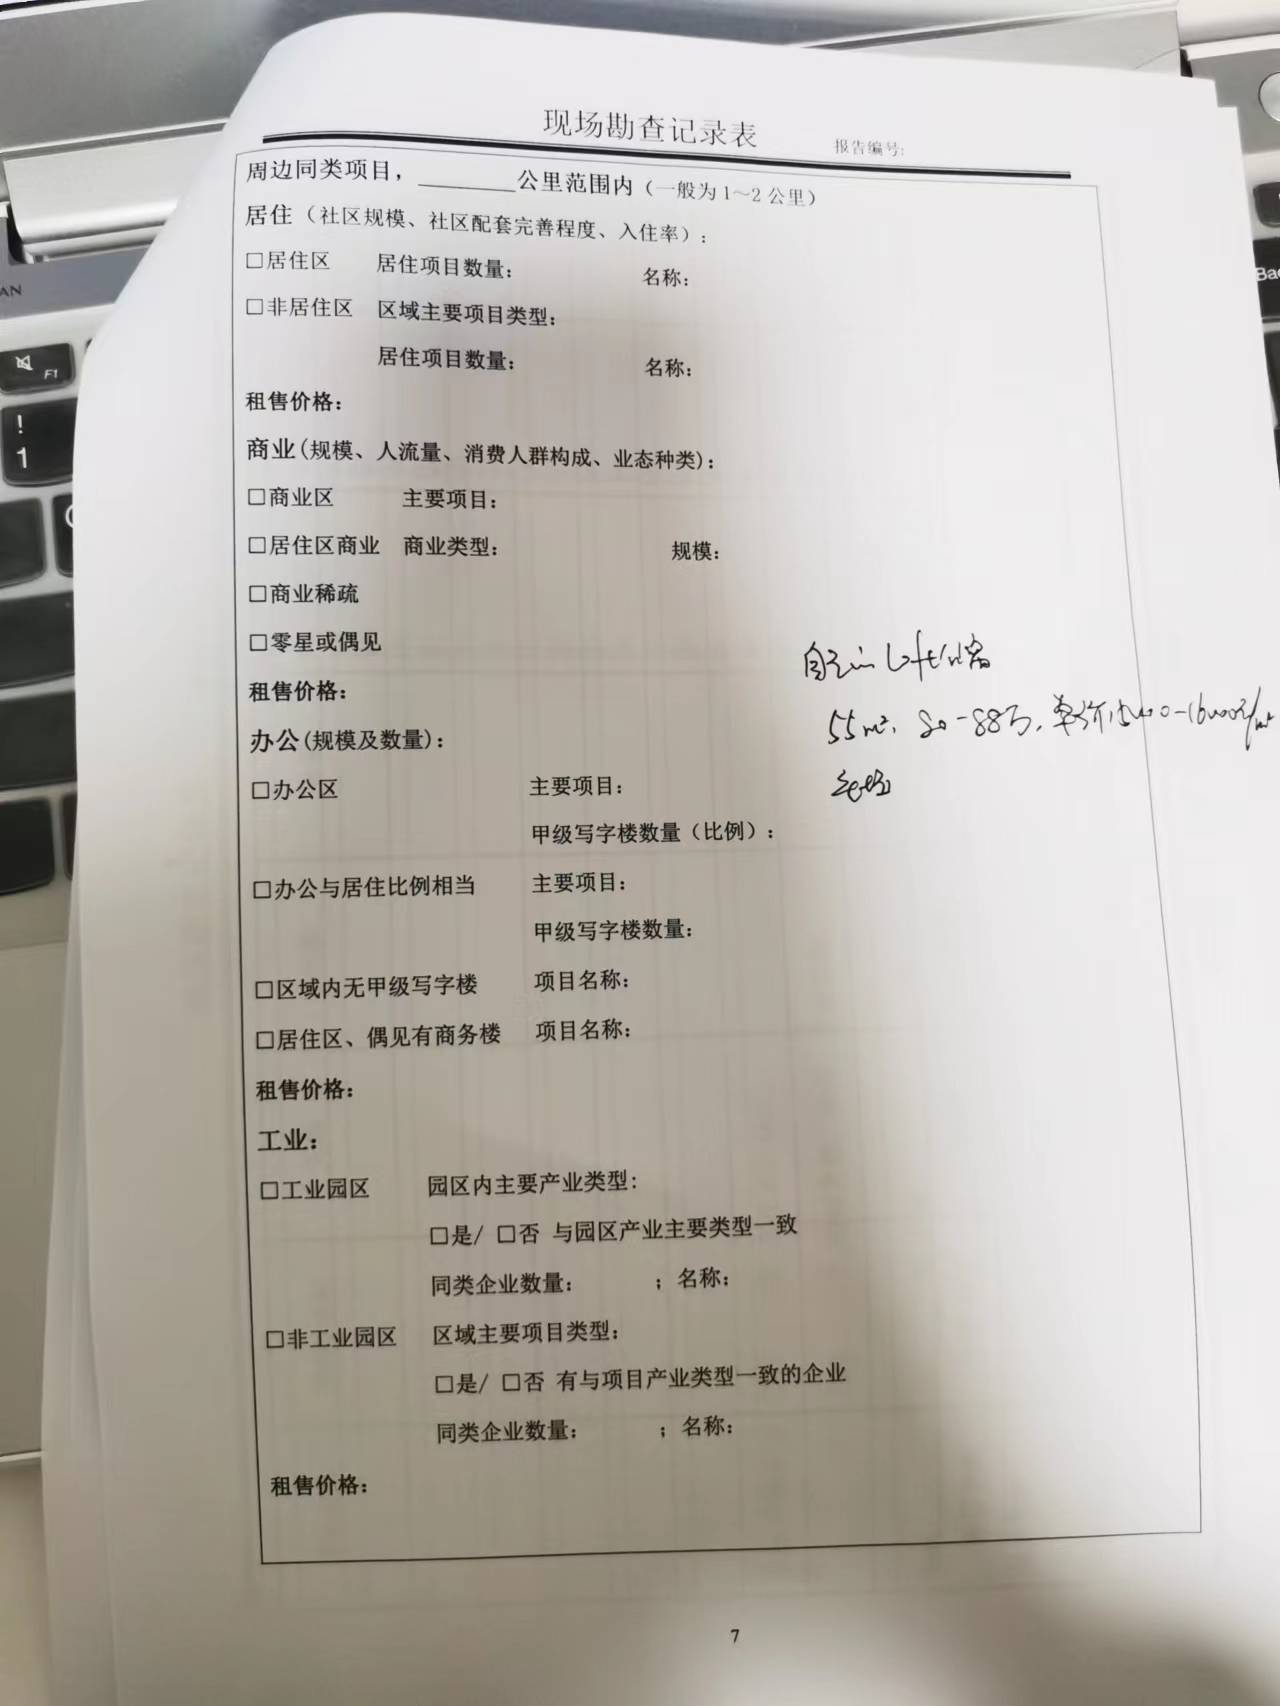 现场勘查记录表
报告编号:
周边同类项目，________公里范围内（一般为1～2公里）
居住（社区规模、社区配套完善程度、入住率）：
□居住区 居住项目数量： 名称：
□非居住区 区域主要项目类型：
居住项目数量： 名称：
租售价格：
商业(规模、人流量、消费人群构成、业态种类)：
□商业区 主要项目：
□居住区商业 商业类型： 规模：
□商业稀疏
□零星或偶见
租售价格：
办公(规模及数量)：
55m², 80-88万, 单价
□办公区 主要项目：
甲级写字楼数量（比例）：
□办公与居住比例相当 主要项目：
甲级写字楼数量：
□区域内无甲级写字楼 项目名称：
□居住区、偶见有商务楼 项目名称：
租售价格：
工业：
□工业园区 园区内主要产业类型：
□是/ □否 与园区产业主要类型一致
同类企业数量： ；名称：
□非工业园区 区域主要项目类型：
□是/ □否 有与项目产业类型一致的企业
同类企业数量： ；名称：
租售价格：
7
F1
!
1
AN
Bac